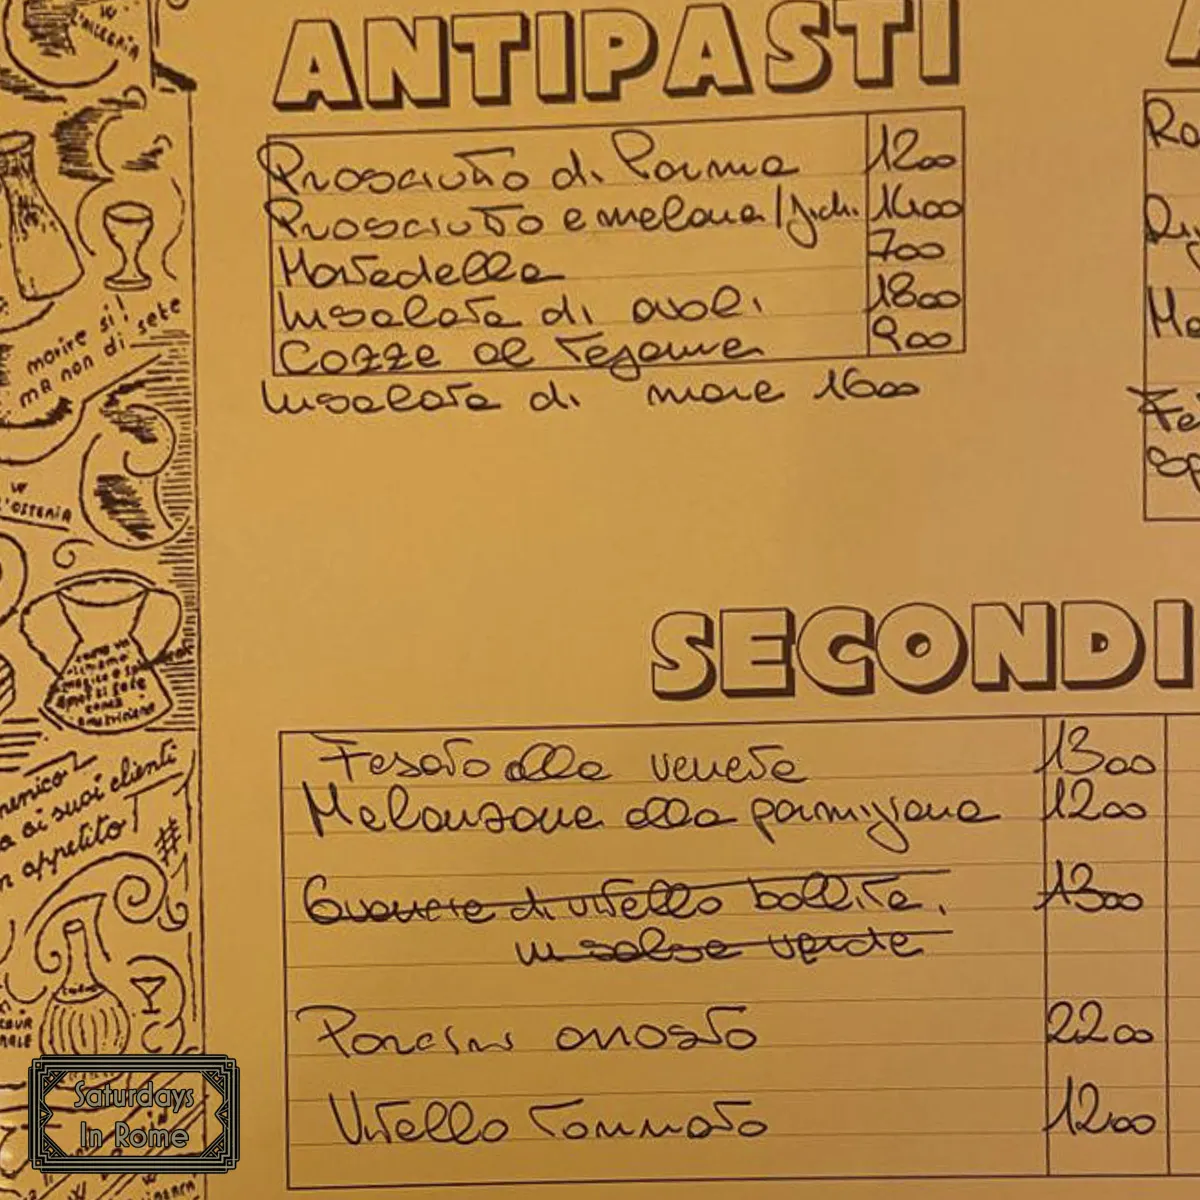 W
L'ALLEGRIA
ANTIPASTI
Prosciutto di Parma 1200
Prosciutto e melone/fichi 1400
Mortadella 700
Insalata di ovoli 1800
Cozze al tegame 900
Insalata di mare 1600
morire si!
ma non di sete
W
L'OSTERIA
SECONDI
Fegato alla veneta 1300
Melanzane alla parmigiana 1200
Guancie di vitello bollite, 1300
in salsa verde
Porcini arrosto 2200
Vitello tonnato 1200
ai suoi clienti
appetito
Ro
Ri
Fe
Saturdays
In Rome